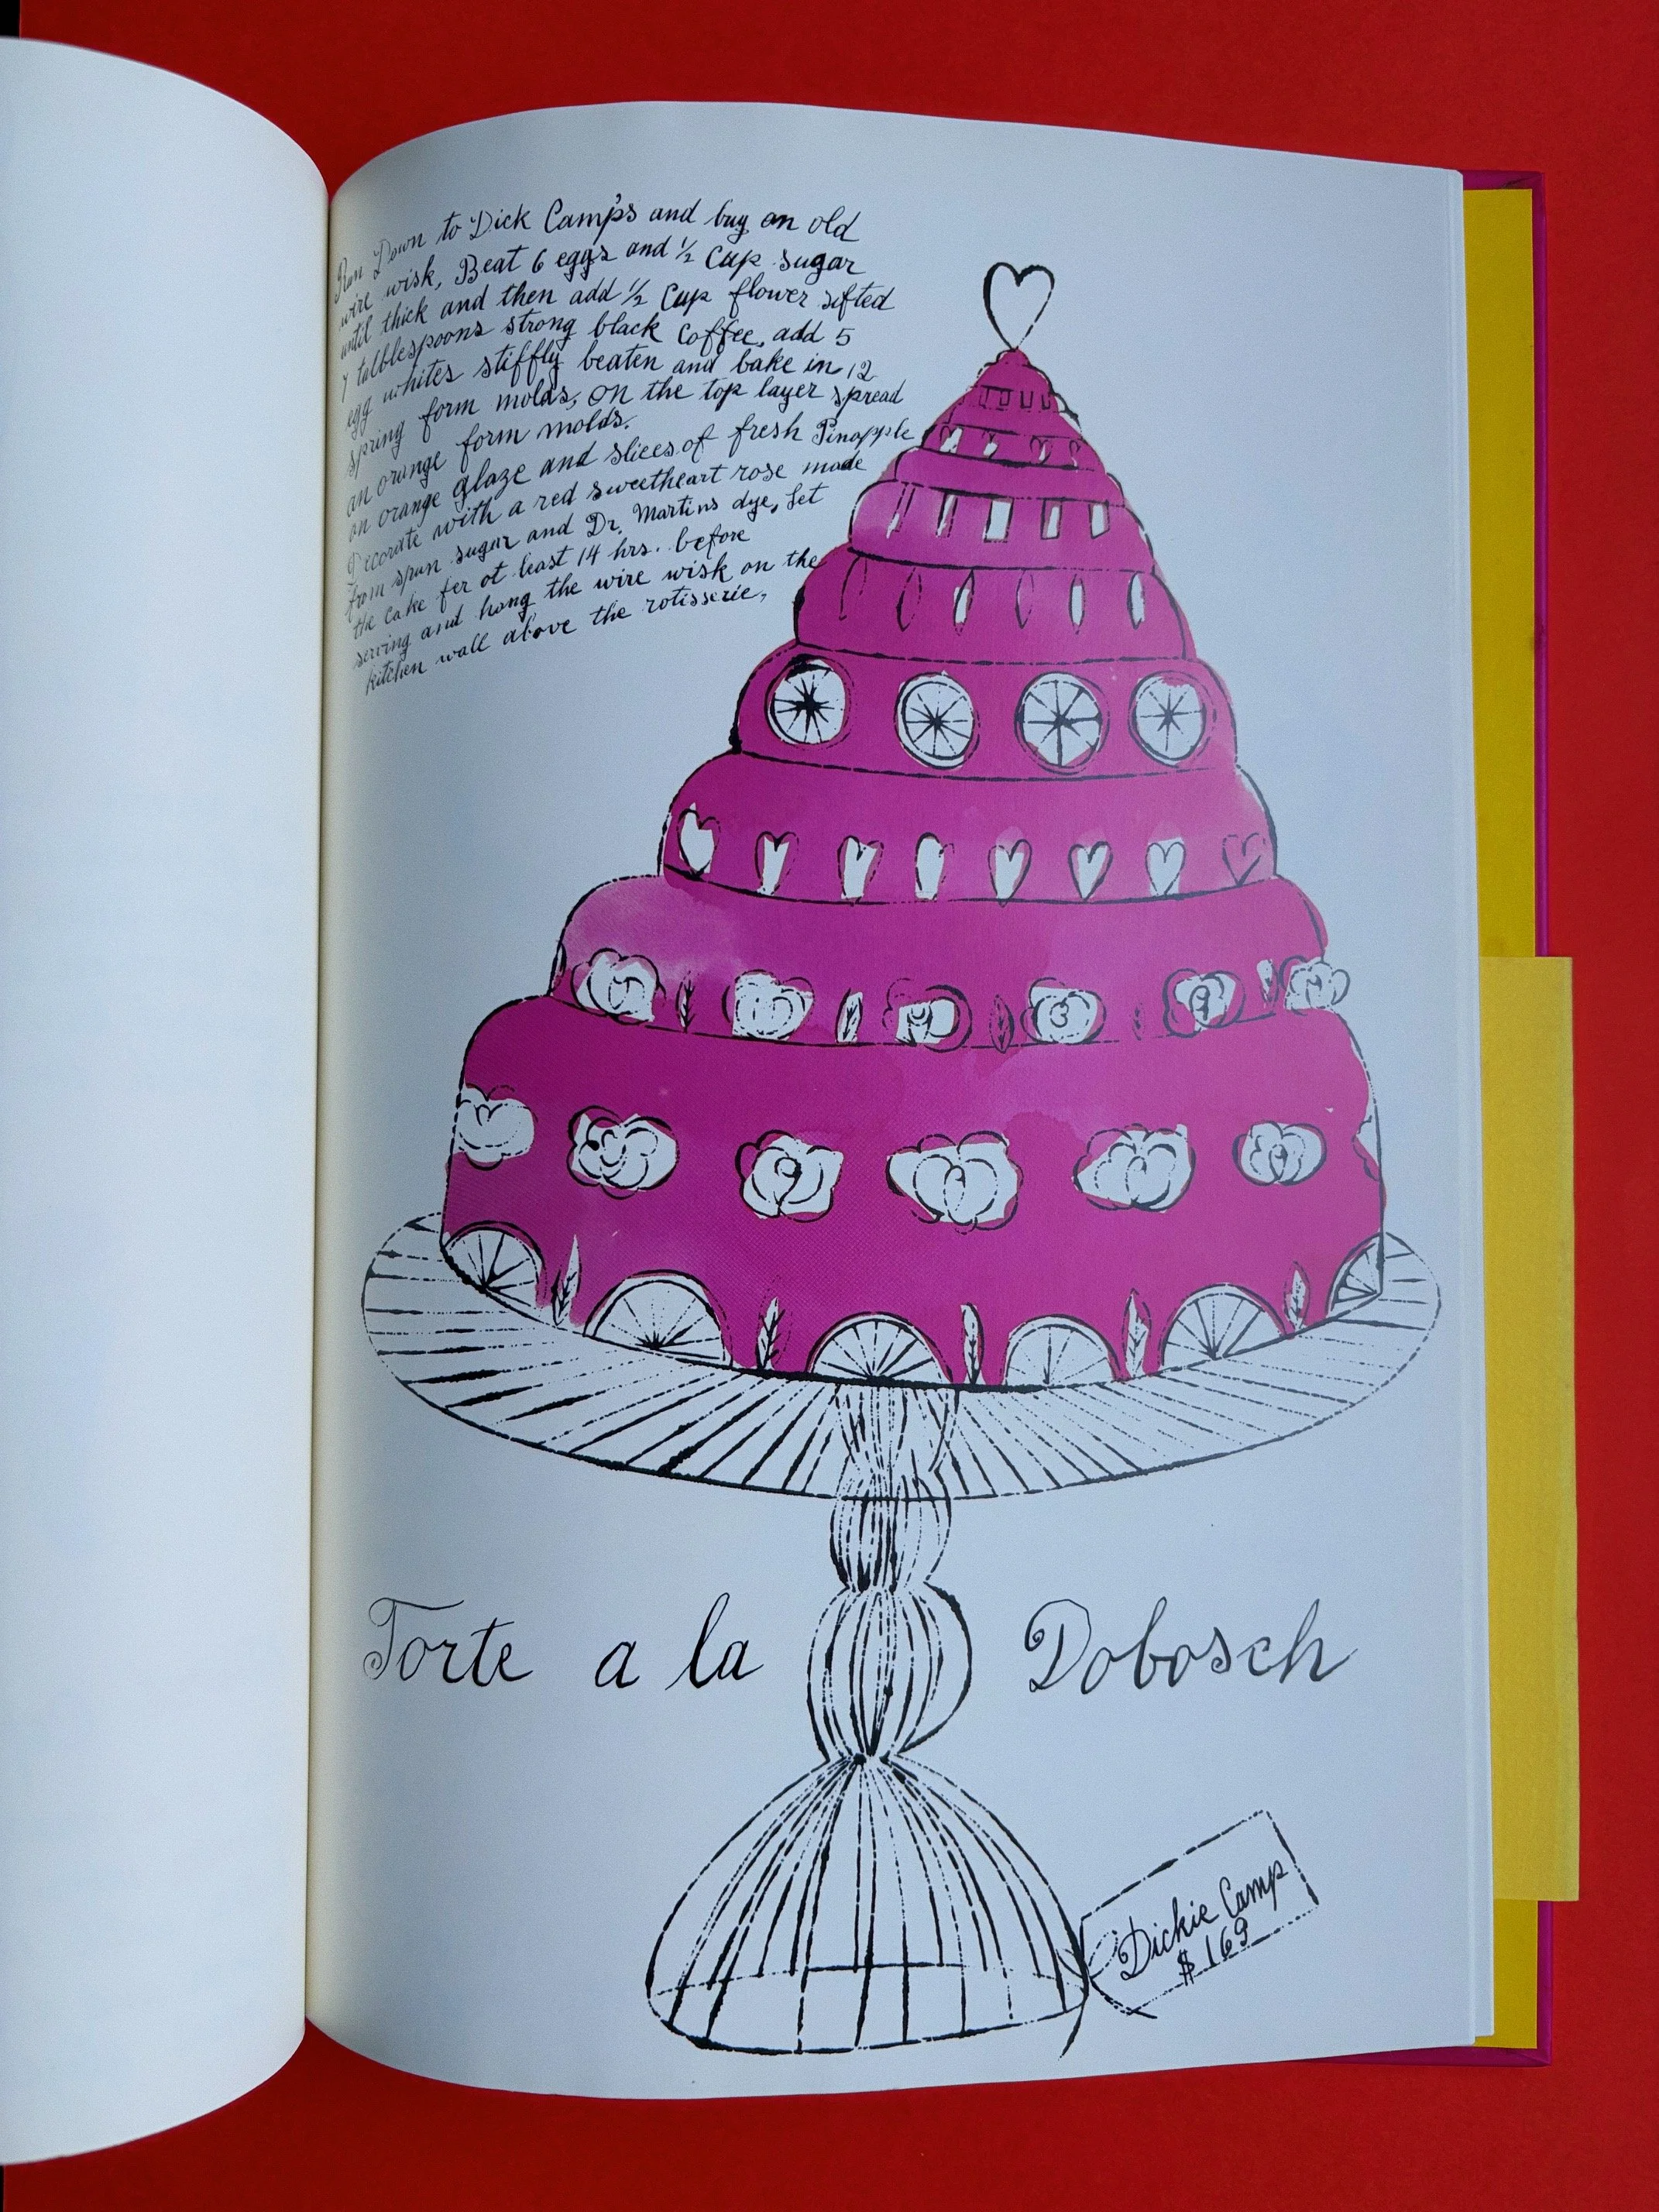 Run Down to Dick Camp's and buy an old
wire wisk, Beat 6 eggs and 1/2 Cup sugar
until thick and then add 1/2 Cup flower sifted
7 talblespoons strong black Coffee, add 5
egg whites stiffly beaten and bake in 12
spring form molds, on the top layer spread
an orange form molds.
on orange glaze and slices of fresh Pinapple
Decorate with a red sweetheart rose made
from spun sugar and Dr. Martins dye, let
the cake fer at least 14 hrs. before
serving and hang the wire wisk on the
kitchen wall above the rotisserie,
Torte a la Dobosch
Dickie Camp
$ 169